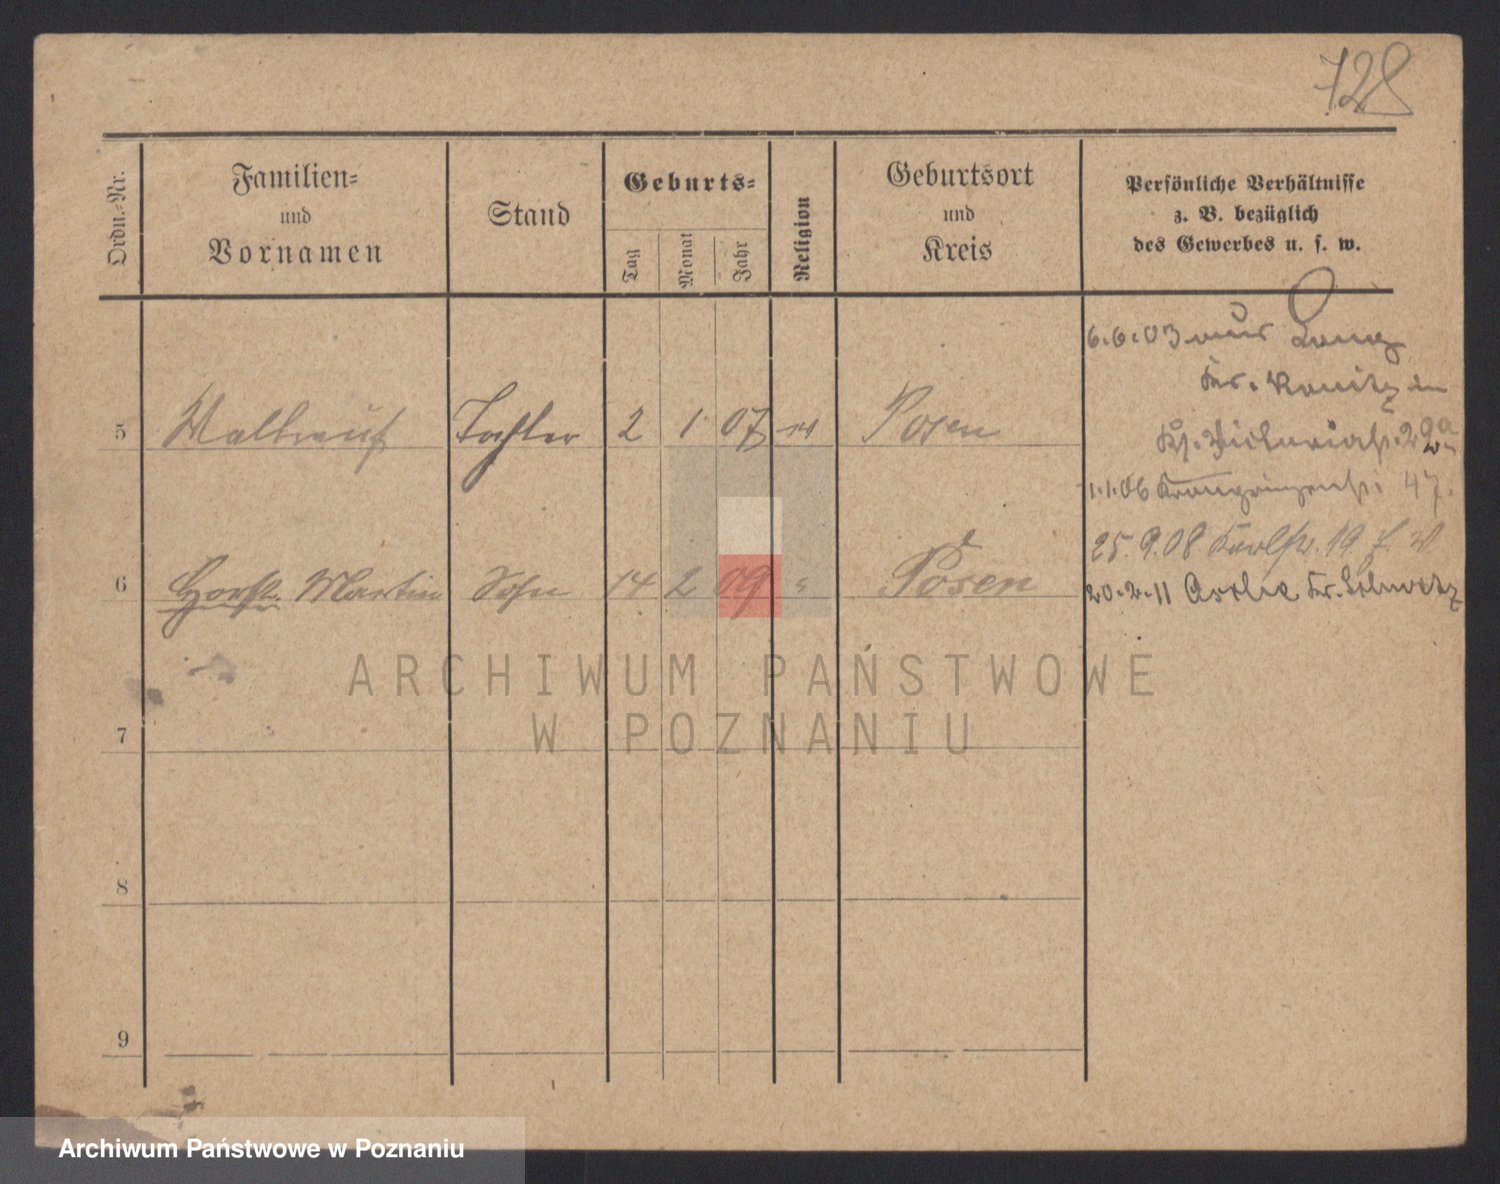 728
Ordn.-Nr.
Familien-
und
Vornamen
Stand
Geburts-
Tag
Monat
Jahr
Religion
Geburtsort
und
Kreis
Persönliche Verhältnisse
z. B. bezüglich
des Gewerbes u. s. w.
6.6.03 aus
Kr. in
5 Waltraut Tochter 2 1 07 ev Posen
1.1.06 Kronprinzenstr. 47.
25.9.08 Karlstr. 19
6 Horst Martin Sohn 14 2 09 " Posen
20.2.11 Kr.
7
8
9
ARCHIWUM PAŃSTWOWE
W POZNANIU
Archiwum Państwowe w Poznaniu